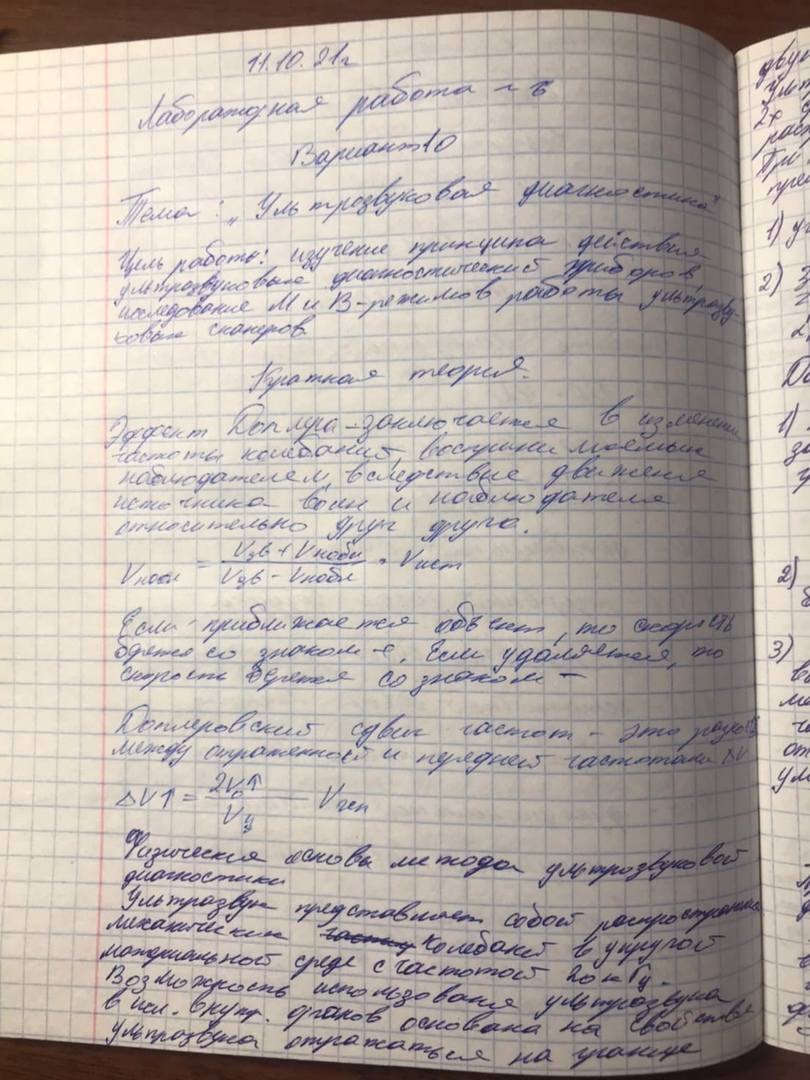 11.10.21г
Лабораторная работа
Вариант 10
Тема: „Ультрозвуковая диагностика"
Цель работы: изучение принципа действия
ультрозвуковых диагностический приборов,
исследование М и В-режимов работы ультрозву-
ковых сканеров.
Краткая теория.
Эффект Доплера - заключается в изменении
частоты колебаний, воспринимаемых
наблюдателем, вследствие движения
источника волн и наблюдателя
относительно друг друга.
Vнабл = Vзв + Vнабл / Vзв - Vнабл · Vист
Если приближается объект, то скорость
берется со знаком +, если удаляется, то
скорость берется со знаком -
Доплеровский сдвиг частот - это разность
между отраженной и передней частотами ΔV
ΔV↑ = 2V₀↑ / Vу Vген
Физические основы метода ультрозвуковой
диагностики
Ультрозвук представляет собой распространение
механических колебаний в упругой
материальной среде с частотой 20 кГц.
Возможность использования ультрозвука
в исл. внутр. органов основана на свойстве
ультрозвука отражаться на границе
двух
2х
При
1) у
2)
1)
2)
3)